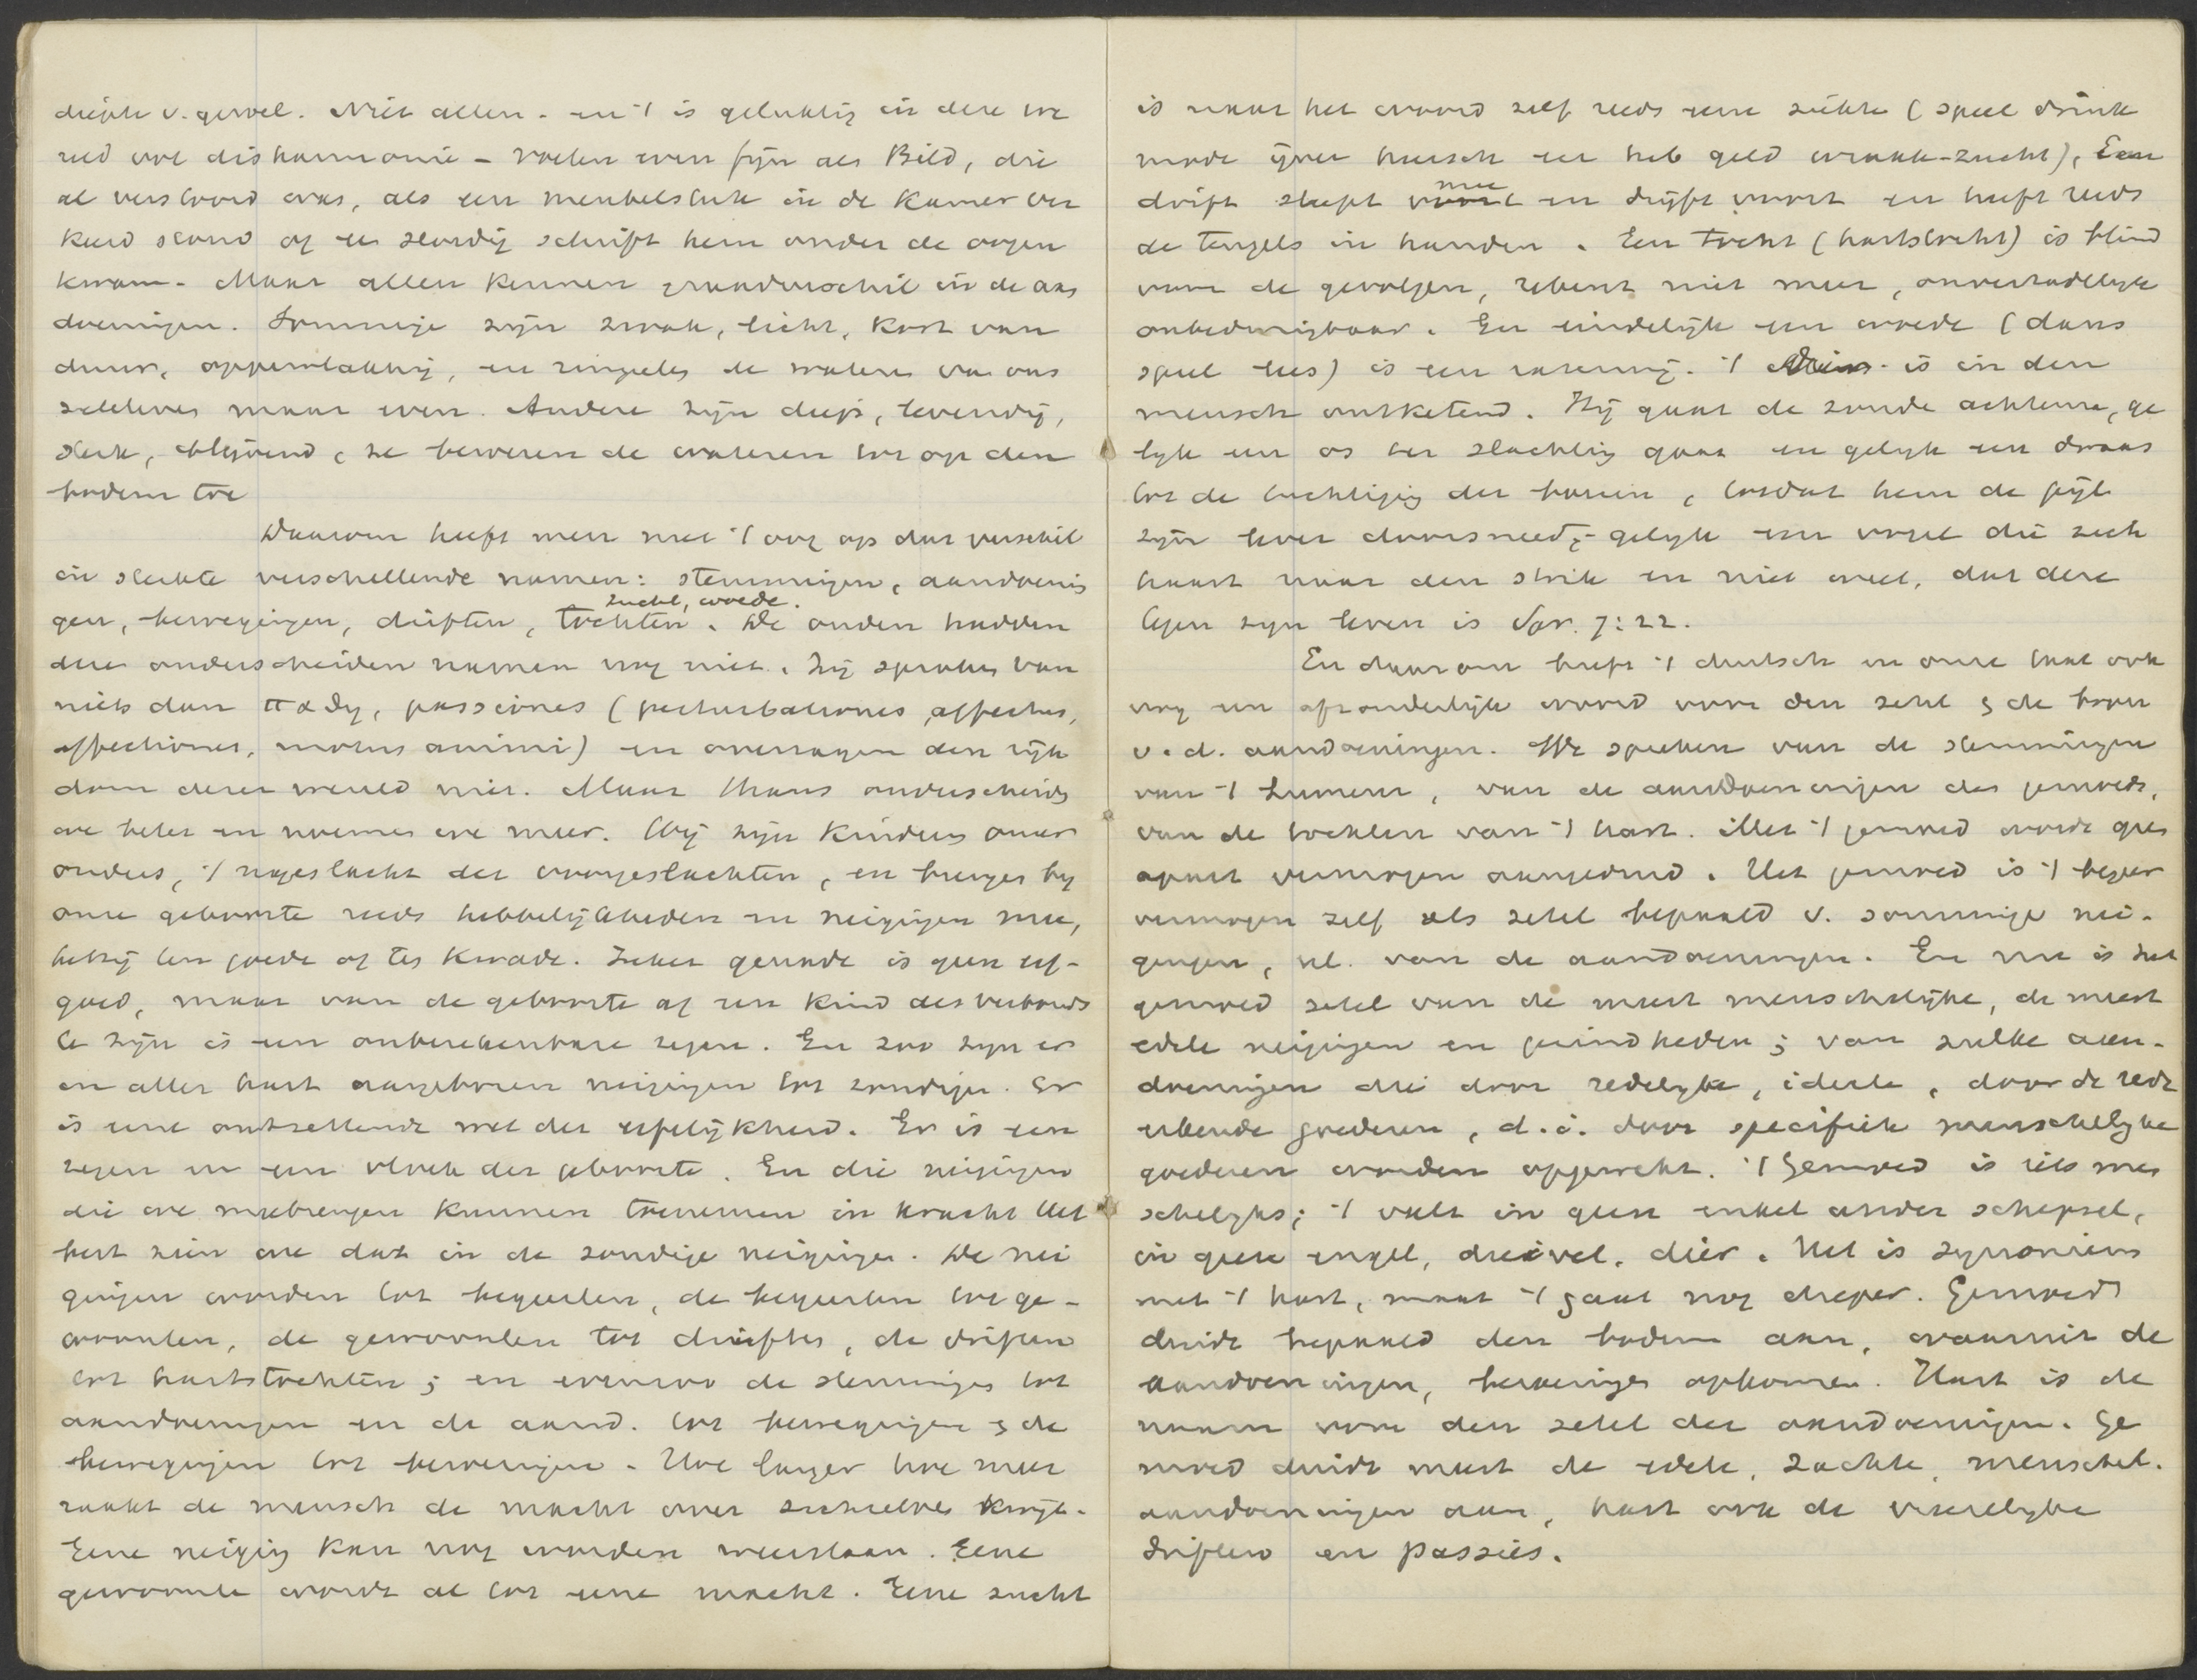 diepte v. gevoel. Niet allen - en 't is gelukkig in deze we
reld vol disharmonie - voelen even fijn als Bild, die
al verstoord was, als een meubelstuk in de kamer ver
keerd stond of een slordig schrift hem onder de oogen
kwam - Maar allen kennen graadverschil in de aan
doeningen. Sommige zijn zwak, licht, kort van
duur, oppervlakkig, en rimpelen de wateren van ons
zieleleven maar even. Andere zijn diep, levendig,
sterk, blijvend, ze beroeren de wateren tot op den
bodem toe
Daarom heeft men met 't oog op dat verschil
in sterkte verschillende namen: stemmingen, aandoenin
zucht, woede.
gen, bewegingen, driften, tochten. De ouden hadden
deze onderscheiden namen nog niet. Zij spraken van
niets dan παθη, passiones (perturbationes, affectus,
affectiones, motus animi) en overzagen den rijk
dom dezer wereld niet. Maar thans onderscheiden
we beter en noemen we meer. Wij zijn kinderen onzer
ouders, 't nageslacht der voorgeslachten, en brengen bij
onze geboorte reeds hebbelijkheden en neigingen mee,
hetzij ten goede of ten kwade. Zeker genade is geen erf-
goed, maar van de geboorte af een kind des verbonds
te zijn is een onberekenbare zegen. En zoo zijn er
in aller hart aangeboren neigingen tot zondigen. Er
is eene ontzettende wet der erfelijkheid. Er is een
zegen en een vloek der geboorte. En die neigingen
die we meebrengen kunnen toenemen in kracht Het
best zien we dat in de zondige neigingen. De nei
gingen worden tot begeerten, de begeerten tot ge-
woonten, de gewoonten tot driften, de driften
tot hartstochten; en evenzoo de stemmingen tot
aandoeningen en de aand. tot bewegingen & de
bewegingen tot beroeringen. Hoe langer hoe meer
raakt de mensch de macht over zichzelven kwijt.
Eene neiging kan nog worden weerstaan. Eene
gewoonte wordt al tot eene macht. Eene zucht
is naar het woord zelf reeds eene ziekte (speel drink
mode ijver heersch eer heb geld wraak-zucht), Een
mee
drift sleept voort en drijft voort en heeft reeds
de teugels in handen. Een tocht (hartstocht) is blind
voor de gevolgen, rekent niet meer, onverzadelijk
onbedwingbaar. En eindelijk een woede (dans
speel lees) is een razernij. 't is in den
mensch ontketend. Hij gaat de zonde achterna, ge
lijk een os ter slachting gaat en gelijk een dwaas
tot de tuchtiging der boeien, totdat hem de pijl
zijn lever doorsneed; gelijk een vogel die zich
haast naar den strik en niet weet, dat deze
tegen zijn leven is Spr. 7:22.
En daarom heeft 't duitsch en onze taal ook
nog een afzonderlijk woord voor den zetel & de bron
v.d. aandoeningen. We spreken van de stemmingen
van 't humeur, van de aandoeningen des gemoeds,
van de tochten van 't hart. Met 't gemoed wordt geen
apart vermogen aangeduid. Het gemoed is 't begeer
vermogen zelf als zetel bepaald v. sommige nei-
gingen, nl. van de aandoeningen. En nu is het
gemoed zetel van de meest menschelijke, de meest
edele neigingen en gezindheden; van zulke aan-
doeningen die door redelijke, ideele, door de rede
erkende goederen, d.i. door specifiek menschelijke
goederen worden opgewekt. 't Gemoed is iets men
schelijks; 't valt in geen enkel ander schepsel,
in geen engel, duivel, dier. Het is synoniem
met 't hart, maar 't gaat nog dieper. Gemoed
duidt bepaald den bodem aan, waaruit de
aandoeningen, beroeringen opkomen. Hart is de
naam voor den zetel der aandoeningen. Ge
moed duidt meest de edele, zachte, menschel.
aandoeningen aan, hart ook de vreeselijke
driften en passies.